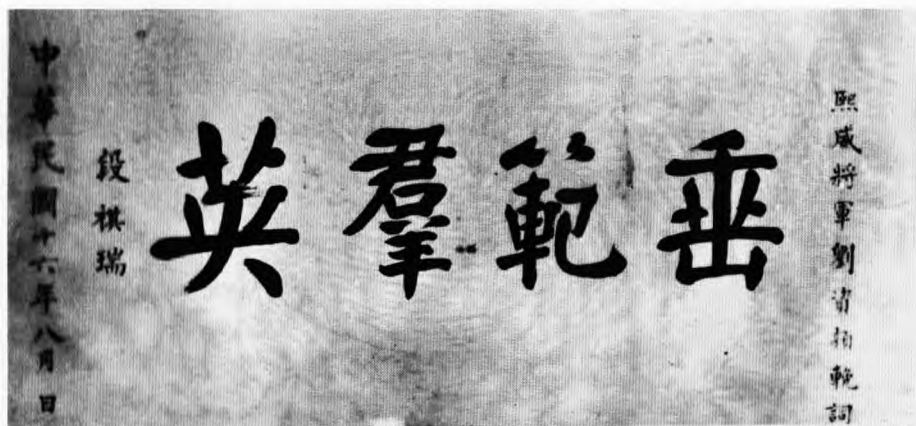 熙威將軍劉
輓詞
垂範羣英
段祺瑞
中華民國十六年八月 日